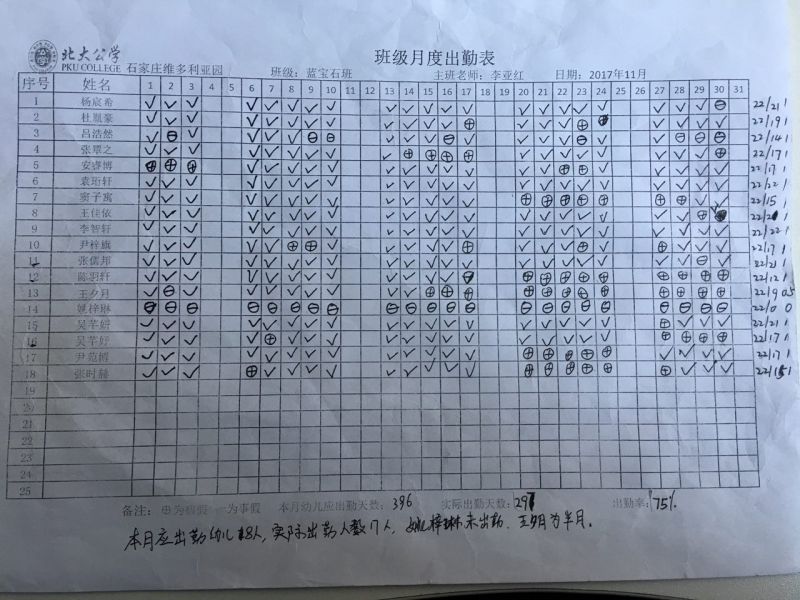 北大公学 班级月度出勤表
PKU COLLEGE 石家庄维多利亚园 班级：蓝宝石班 主班老师：李亚红 日期：2017年11月
序号 姓名 1 2 3 4 5 6 7 8 9 10 11 12 13 14 15 16 17 18 19 20 21 22 23 24 25 26 27 28 29 30 31
1 杨宸希 22/21 1
2 杜胤豪 22/19 1
3 吕浩然 22/14 1
4 张覃之 22/17 1
5 安睿博 22/17 1
6 袁珩轩 22/22 1
7 窦子寓 22/15 1
8 王佳依 1
9 李智轩 22/22 1
10 尹梓旗 22/17 1
11 张儒邦 22/21 1
12 陈羽轩 22/12 1
13 王夕月 22/9 0.5
14 姚梓琳 22/0 0
15 吴芊妍 22/21 1
16 吴芊妤 22/17 1
17 尹范博 22/17 1
18 张时赫 1
19
20
21
22
23
24
25
备注：⊕为病假 一为事假 本月幼儿应出勤天数：396 实际出勤天数：297 出勤率：75%
本月应出勤幼儿18人，实际出勤人数17人，姚梓琳未出勤，王夕月为半月。